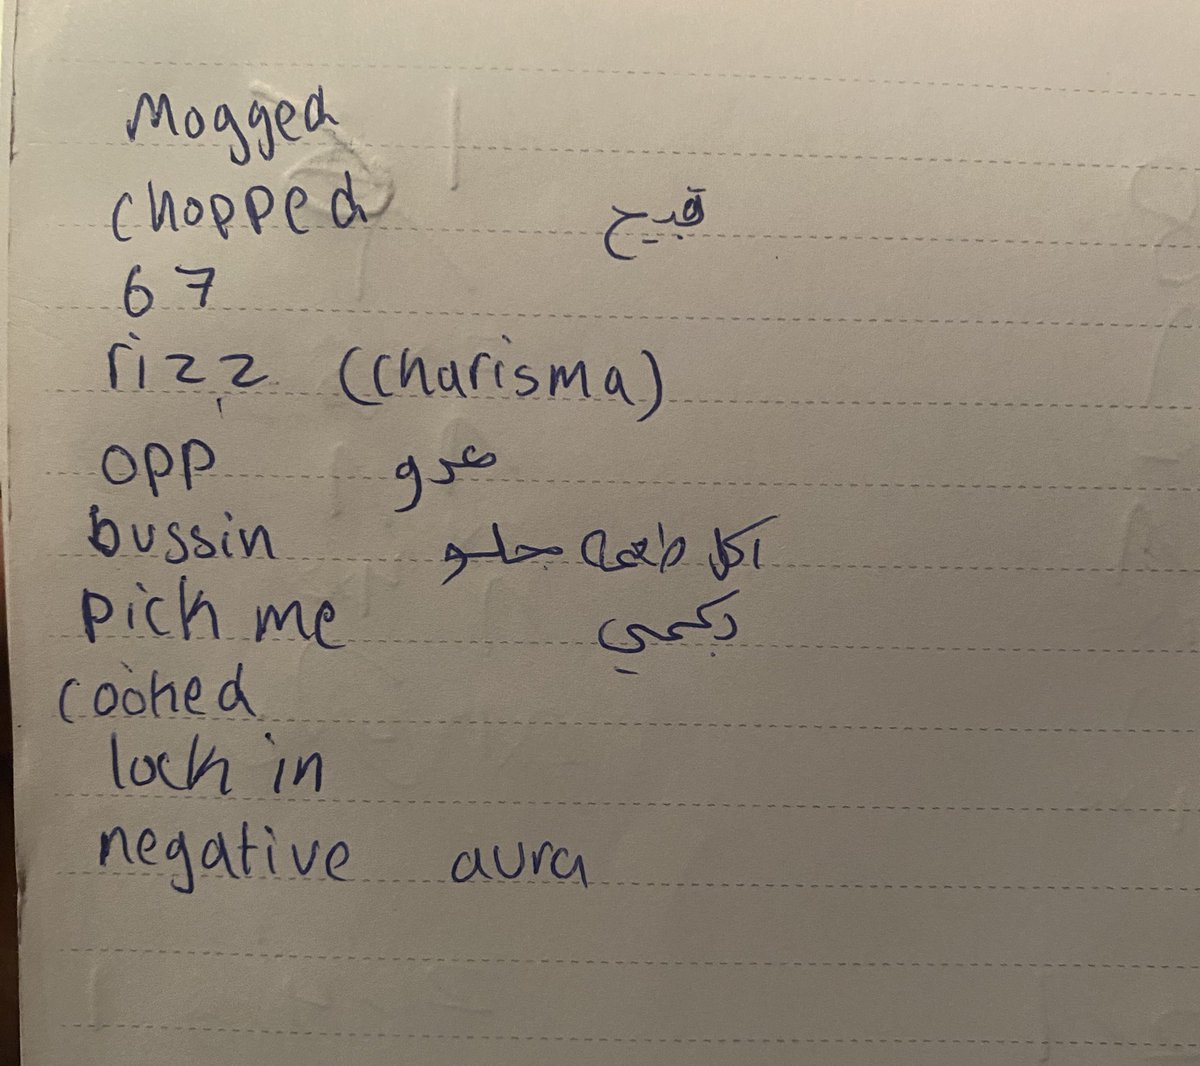 Mogged
chopped قبيح
67
rizz (charisma)
opp عدو
bussin اكل طعمه حلو
pick me
cooked
lock in
negative aura